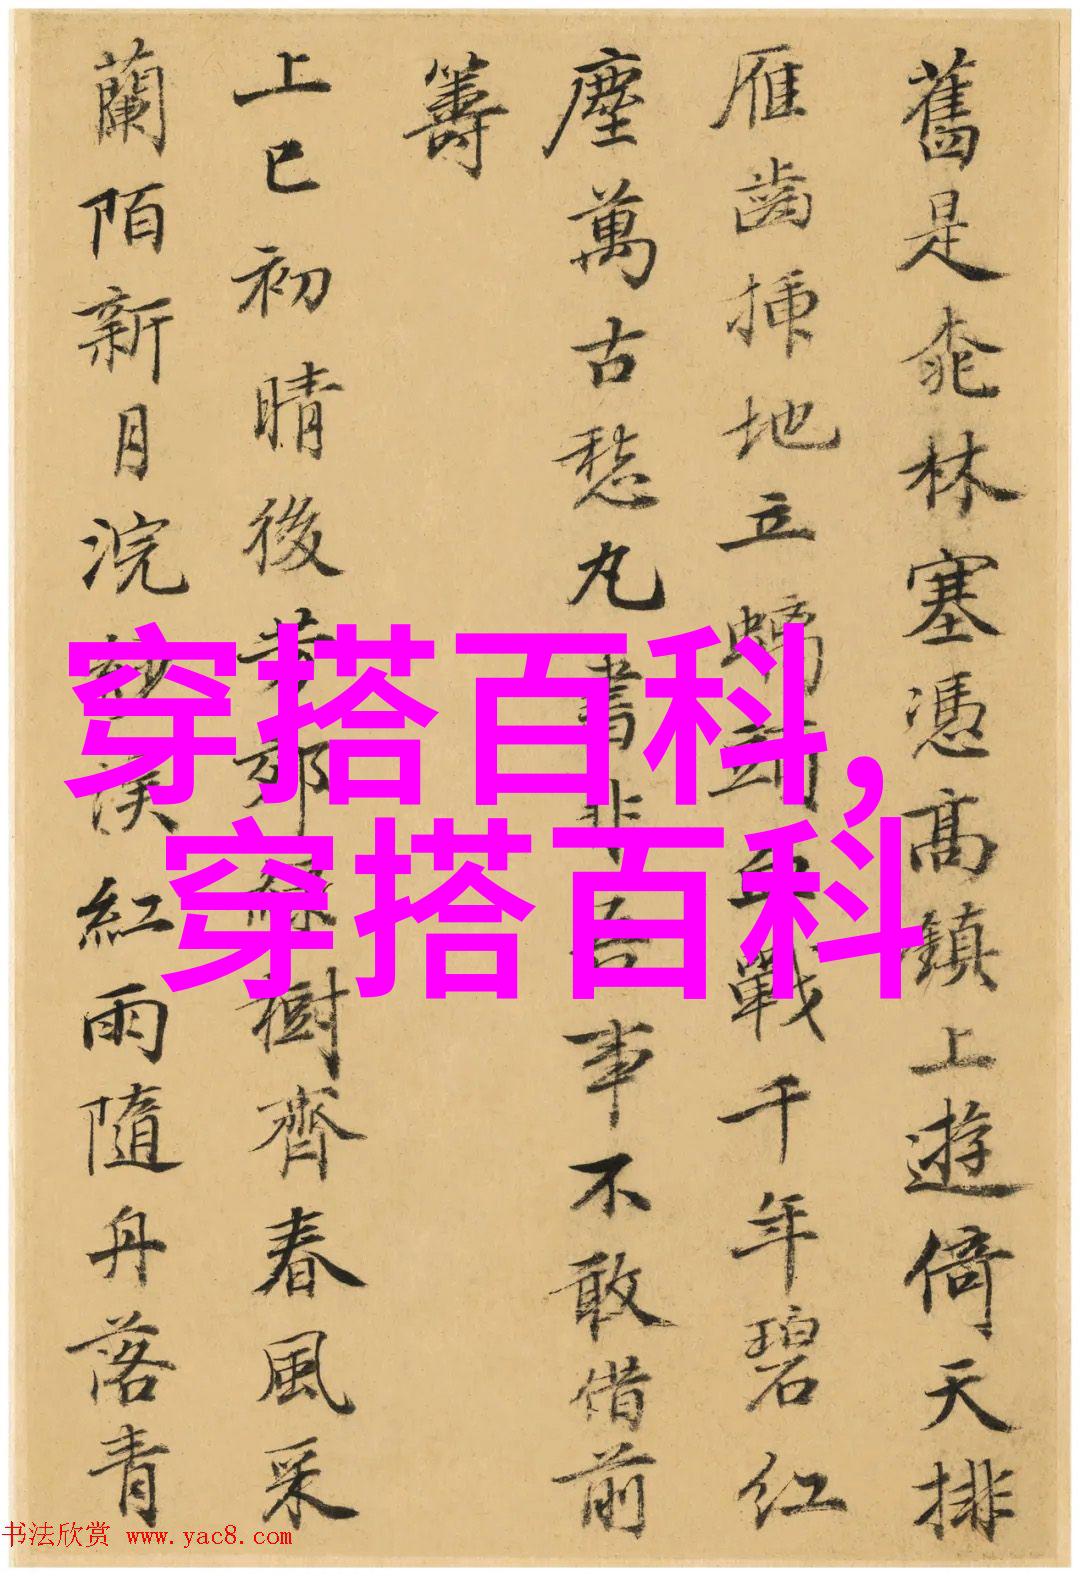 舊是桃林塞憑高鎮上遊倚天排
雁齒插地立螭頭血戰千年碧紅
塵萬古愁丸書非吾事不敢借前
籌
上巳初晴後芳郊綠樹齊春風采
蘭陌新月浣紗溪紅雨隨舟落青
穿搭百科,
穿搭百科
书法欣赏 www.yac8.com